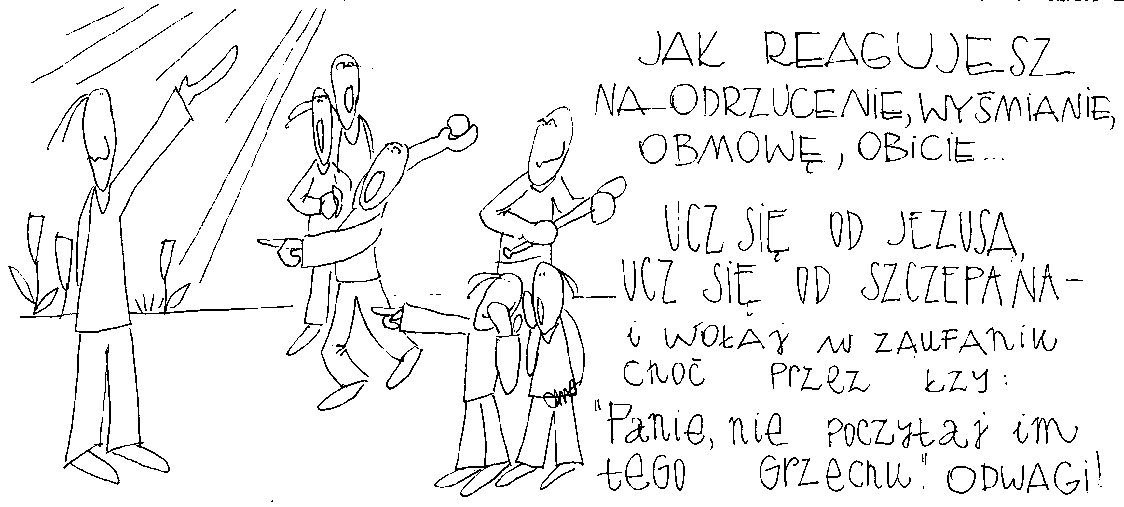 JAK REAGUJESZ
NA ODRZUCENIE, WYŚMIANIE,
OBMOWĘ, OBICIE...
UCZ SIĘ OD JEZUSA,
UCZ SIĘ OD SZCZEPANA -
i WOŁAJ W ZAUFANIU
CHOĆ PRZEZ ŁZY:
"Panie, nie POCZYTAJ im
tego Grzechu". ODWAGI!